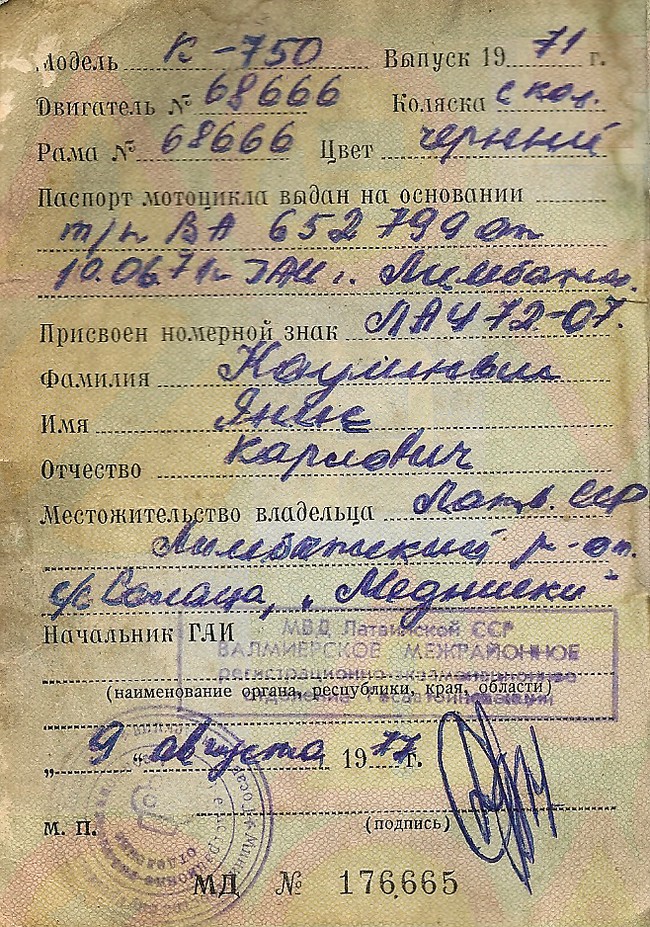 Модель К-750 Выпуск 1971 г.
Двигатель № 68666 Коляска с кол.
Рама № 68666 Цвет черный
Паспорт мотоцикла выдан на основании
т/п ВА 652799 от
10.06.71г. ГАИ г. Лимбажи.
Присвоен номерной знак ЛАЧ 72-07.
Фамилия
Имя Янис
Отчество Карлович
Местожительство владельца Латв. ССР
Лимбажский р-он.
с/с Салаца, „Медниеки"
Начальник ГАИ
МВД Латвийской ССР
ВАЛМИЕРСКОЕ МЕЖРАЙОННОЕ
регистрационно-экзаменационное
отделение Госавтоинспекции
(наименование органа, республики, края, области)
„9" августа 1977г.
М. П. (подпись)
МД № 176665